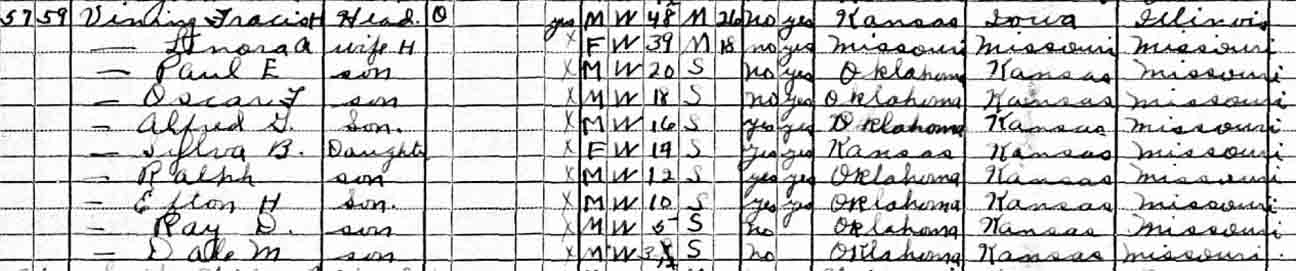 57 59 Vining Fracis H Head O yes M W 48 M 26 no yes Kansas Iowa Illinois
— Lenora A wife H X F W 39 M 18 no yes Missouri Missouri Missouri
— Paul E son X M W 20 S no yes Oklahoma Kansas Missouri
— Oscar F son X M W 18 S no yes Oklahoma Kansas Missouri
— Alfred G. Son. X M W 16 S yes yes Oklahoma Kansas Missouri
— Sylva B. Daughte X F W 14 S yes yes Kansas Kansas Missouri
— Ralph son X M W 12 S yes yes Oklahoma Kansas Missouri
— Elton H son. X M W 10 S yes yes Oklahoma Kansas Missouri
— Ray D. son X M W 5 S no Oklahoma Kansas Missouri
— Dale M son X M W 3 S no Oklahoma Kansas Missouri.